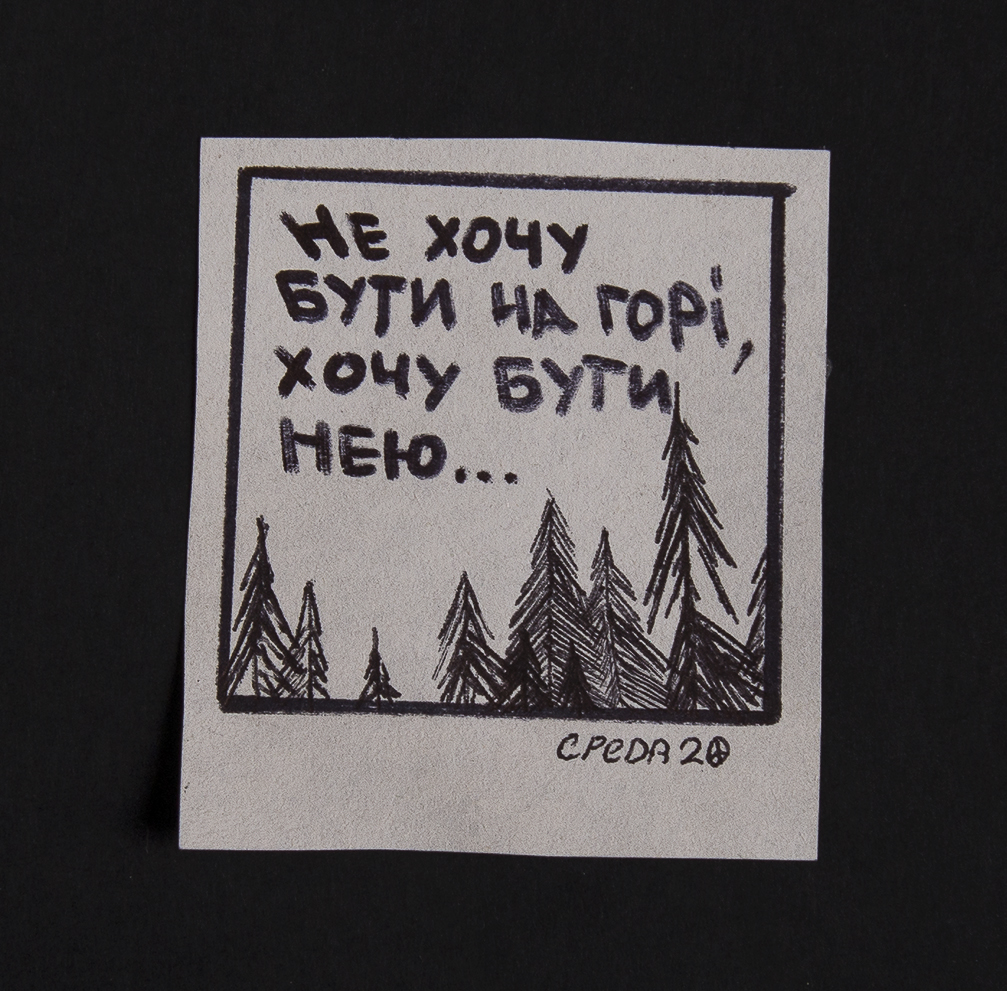 НЕ ХОЧУ
БУТИ НА ГОРІ,
ХОЧУ БУТИ
НЕЮ...
СРЕДА 20